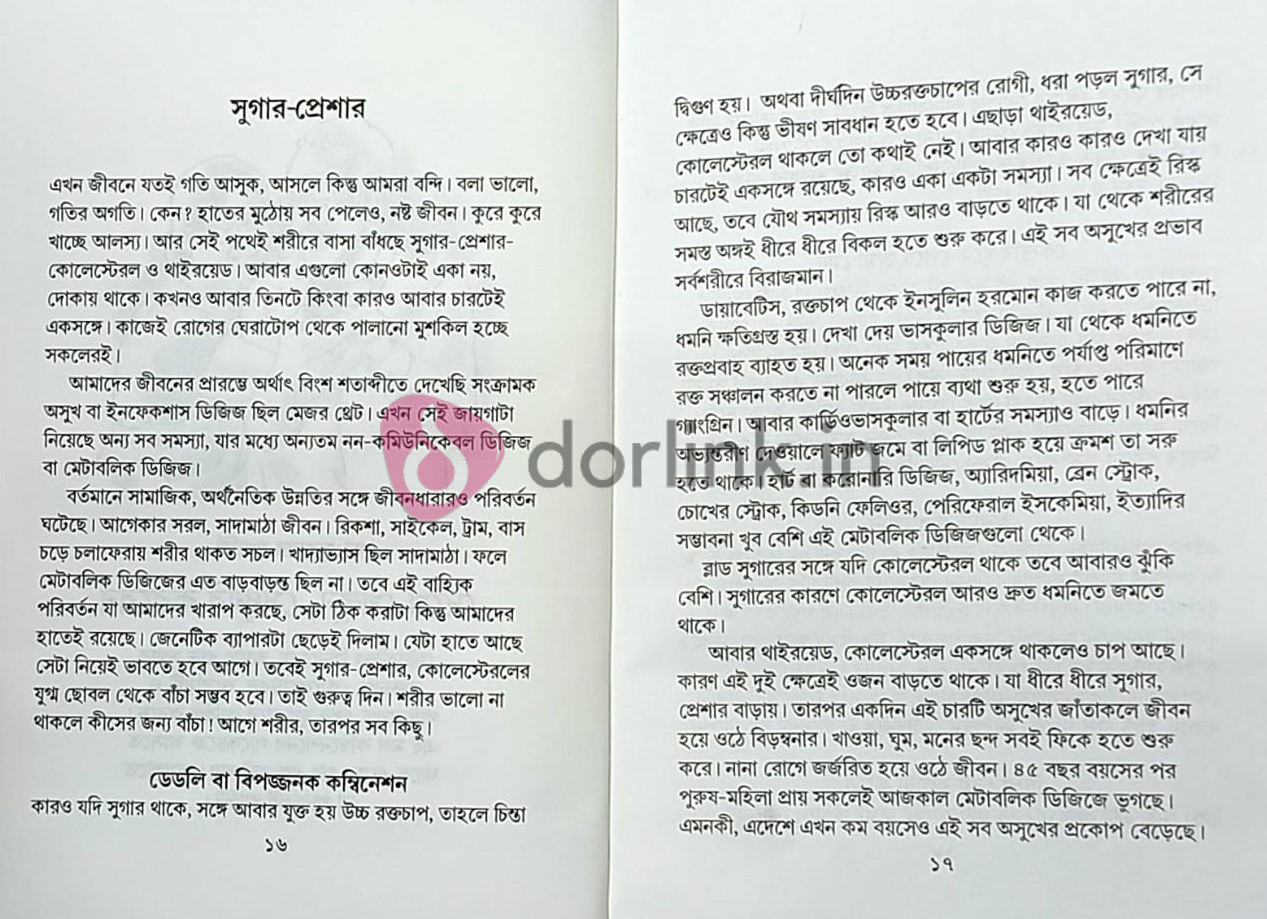 সুগার-প্রেশার
এখন জীবনে যতই গতি আসুক, আসলে কিন্তু আমরা বন্দি। বলা ভালো,
গতির অগতি। কেন? হাতের মুঠোয় সব পেলেও, নষ্ট জীবন। কুরে কুরে
খাচ্ছে আলস্য। আর সেই পথেই শরীরে বাসা বাঁধছে সুগার-প্রেশার-
কোলেস্টেরল ও থাইরয়েড। আবার এগুলো কোনওটাই একা নয়,
দোকায় থাকে। কখনও আবার তিনটে কিংবা কারও আবার চারটেই
একসঙ্গে। কাজেই রোগের ঘেরাটোপ থেকে পালানো মুশকিল হচ্ছে
সকলেরই।
আমাদের জীবনের প্রারম্ভে অর্থাৎ বিংশ শতাব্দীতে দেখেছি সংক্রামক
অসুখ বা ইনফেকশাস ডিজিজ ছিল মেজর থ্রেট। এখন সেই জায়গাটা
নিয়েছে অন্য সব সমস্যা, যার মধ্যে অন্যতম নন-কমিউনিকেবল ডিজিজ
বা মেটাবলিক ডিজিজ।
বর্তমানে সামাজিক, অর্থনৈতিক উন্নতির সঙ্গে জীবনধারারও পরিবর্তন
ঘটেছে। আগেকার সরল, সাদামাঠা জীবন। রিকশা, সাইকেল, ট্রাম, বাস
চড়ে চলাফেরায় শরীর থাকত সচল। খাদ্যাভ্যাস ছিল সাদামাঠা। ফলে
মেটাবলিক ডিজিজের এত বাড়বাড়ন্ত ছিল না। তবে এই বাহ্যিক
পরিবর্তন যা আমাদের খারাপ করছে, সেটা ঠিক করাটা কিন্তু আমাদের
হাতেই রয়েছে। জেনেটিক ব্যাপারটা ছেড়েই দিলাম। যেটা হাতে আছে
সেটা নিয়েই ভাবতে হবে আগে। তবেই সুগার-প্রেশার, কোলেস্টেরলের
যুগ্ম ছোবল থেকে বাঁচা সম্ভব হবে। তাই গুরুত্ব দিন। শরীর ভালো না
থাকলে কীসের জন্য বাঁচা! আগে শরীর, তারপর সব কিছু।
ডেডলি বা বিপজ্জনক কম্বিনেশন
কারও যদি সুগার থাকে, সঙ্গে আবার যুক্ত হয় উচ্চ রক্তচাপ, তাহলে চিন্তা
১৬
দ্বিগুণ হয়। অথবা দীর্ঘদিন উচ্চরক্তচাপের রোগী, ধরা পড়ল সুগার, সে
ক্ষেত্রেও কিন্তু ভীষণ সাবধান হতে হবে। এছাড়া থাইরয়েড,
কোলেস্টেরল থাকলে তো কথাই নেই। আবার কারও কারও দেখা যায়
চারটেই একসঙ্গে রয়েছে, কারও একা একটা সমস্যা। সব ক্ষেত্রেই রিস্ক
আছে, তবে যৌথ সমস্যায় রিস্ক আরও বাড়তে থাকে। যা থেকে শরীরের
সমস্ত অঙ্গই ধীরে ধীরে বিকল হতে শুরু করে। এই সব অসুখের প্রভাব
সর্বশরীরে বিরাজমান।
ডায়াবেটিস, রক্তচাপ থেকে ইনসুলিন হরমোন কাজ করতে পারে না,
ধমনি ক্ষতিগ্রস্ত হয়। দেখা দেয় ভাসকুলার ডিজিজ। যা থেকে ধমনিতে
রক্তপ্রবাহ ব্যাহত হয়। অনেক সময় পায়ের ধমনিতে পর্যাপ্ত পরিমাণে
রক্ত সঞ্চালন করতে না পারলে পায়ে ব্যথা শুরু হয়, হতে পারে
গ্যাংগ্রিন। আবার কার্ডিওভাসকুলার বা হার্টের সমস্যাও বাড়ে। ধমনির
অভ্যন্তরীণ দেওয়ালে ফ্যাট জমে বা লিপিড প্লাক হয়ে ক্রমশ তা সরু
হতে থাকে। হার্ট বা করোনারি ডিজিজ, অ্যারিদমিয়া, ব্রেন স্ট্রোক,
চোখের স্ট্রোক, কিডনি ফেলিওর, পেরিফেরাল ইসকেমিয়া, ইত্যাদির
সম্ভাবনা খুব বেশি এই মেটাবলিক ডিজিজগুলো থেকে।
ব্লাড সুগারের সঙ্গে যদি কোলেস্টেরল থাকে তবে আবারও ঝুঁকি
বেশি। সুগারের কারণে কোলেস্টেরল আরও দ্রুত ধমনিতে জমতে
থাকে।
আবার থাইরয়েড, কোলেস্টেরল একসঙ্গে থাকলেও চাপ আছে।
কারণ এই দুই ক্ষেত্রেই ওজন বাড়তে থাকে। যা ধীরে ধীরে সুগার,
প্রেশার বাড়ায়। তারপর একদিন এই চারটি অসুখের জাঁতাকলে জীবন
হয়ে ওঠে বিড়ম্বনার। খাওয়া, ঘুম, মনের ছন্দ সবই ফিকে হতে শুরু
করে। নানা রোগে জর্জরিত হয়ে ওঠে জীবন। ৪৫ বছর বয়সের পর
পুরুষ-মহিলা প্রায় সকলেই আজকাল মেটাবলিক ডিজিজে ভুগছে।
এমনকী, এদেশে এখন কম বয়সেও এই সব অসুখের প্রকোপ বেড়েছে।
১৭
dorlink.in